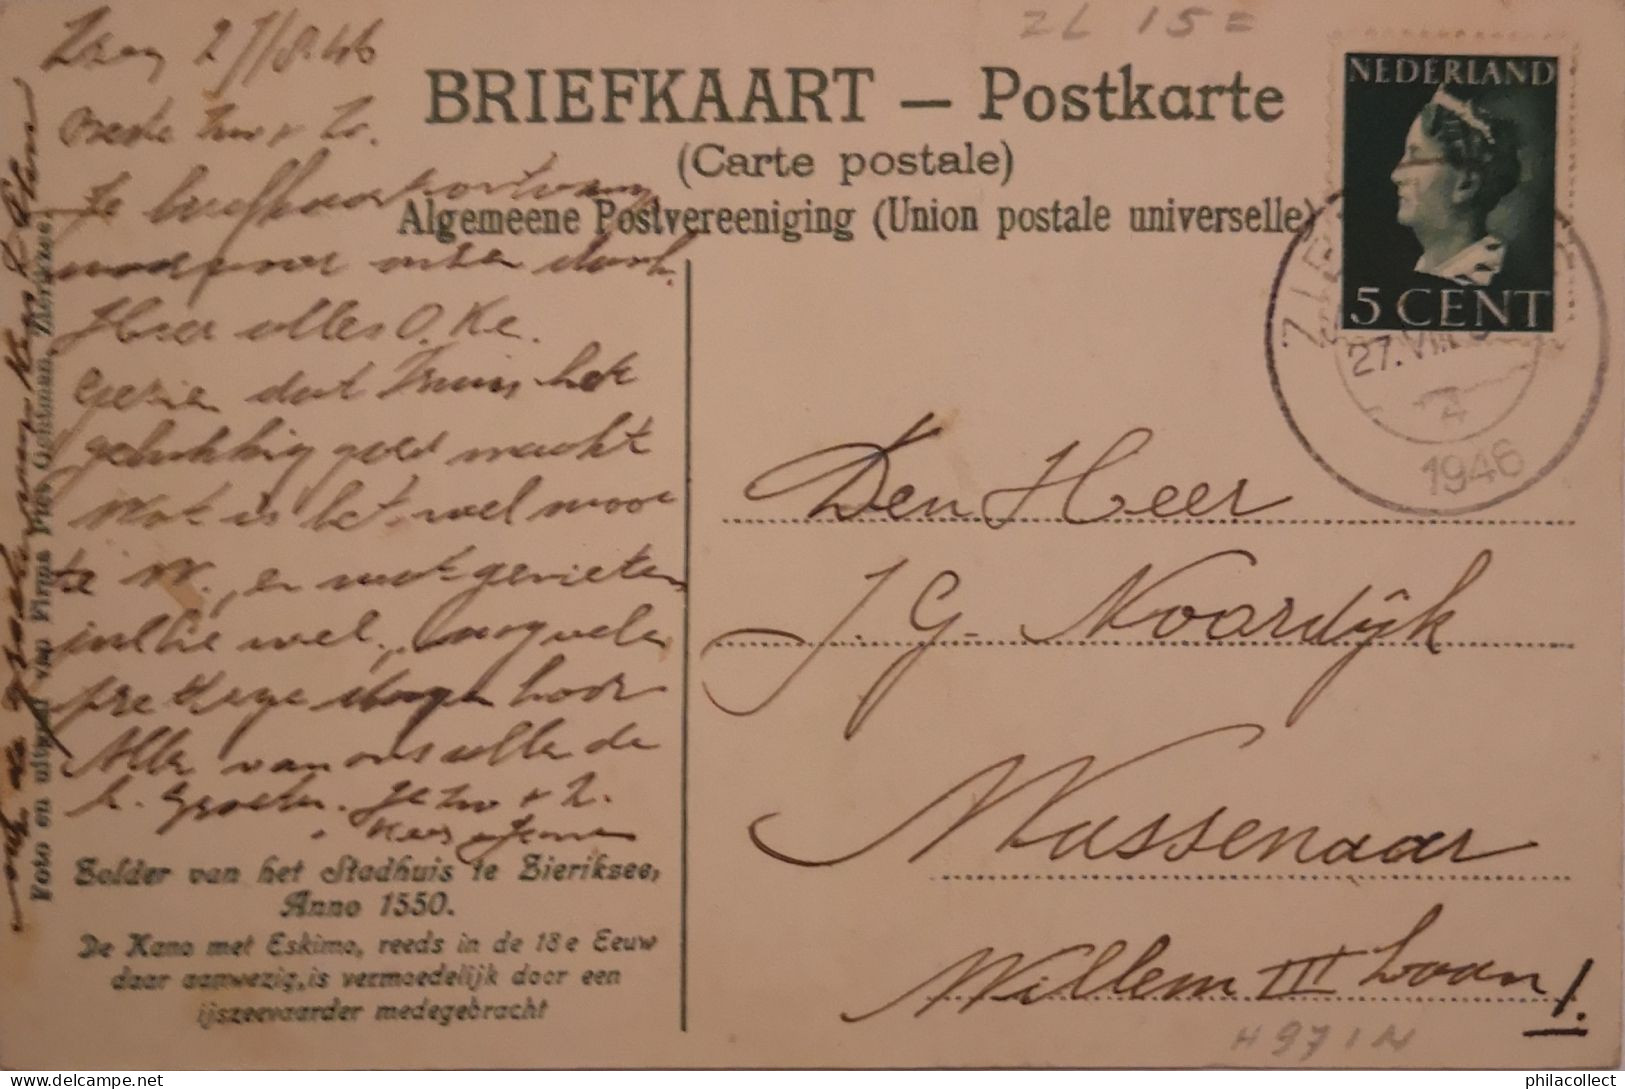 ZL 15=
27/8.46
BRIEFKAART — Postkarte
(Carte postale)
Algemeene Postvereeniging (Union postale universelle)
NEDERLAND
5 CENT
27.VIII
4
1946
Beste Zus + Zo.
Je briefkaart ontvang
waarvoor onzen dank.
Hier alles O.Ke.
Gezien dat Truus het
gelukkig goed maakt
Wat is het wel mooi
te W., en wat genieten
jullie wel, nog vele
prettige dagen hoor
Alle van ons alle de
h. Groeten. Je Zus + Z.
Kees
Foto en uitgaaf van Firma Piet Ochtman, Zierikzee.
Zolder van het Stadhuis te Zierikzee,
Anno 1550.
De Kano met Eskimo, reeds in de 18e Eeuw
daar aanwezig, is vermoedelijk door een
ijszeevaarder medegebracht
Den Heer
J. G. Noordijk
Wassenaar
Willem III Laan 1.
H971N
philacollect